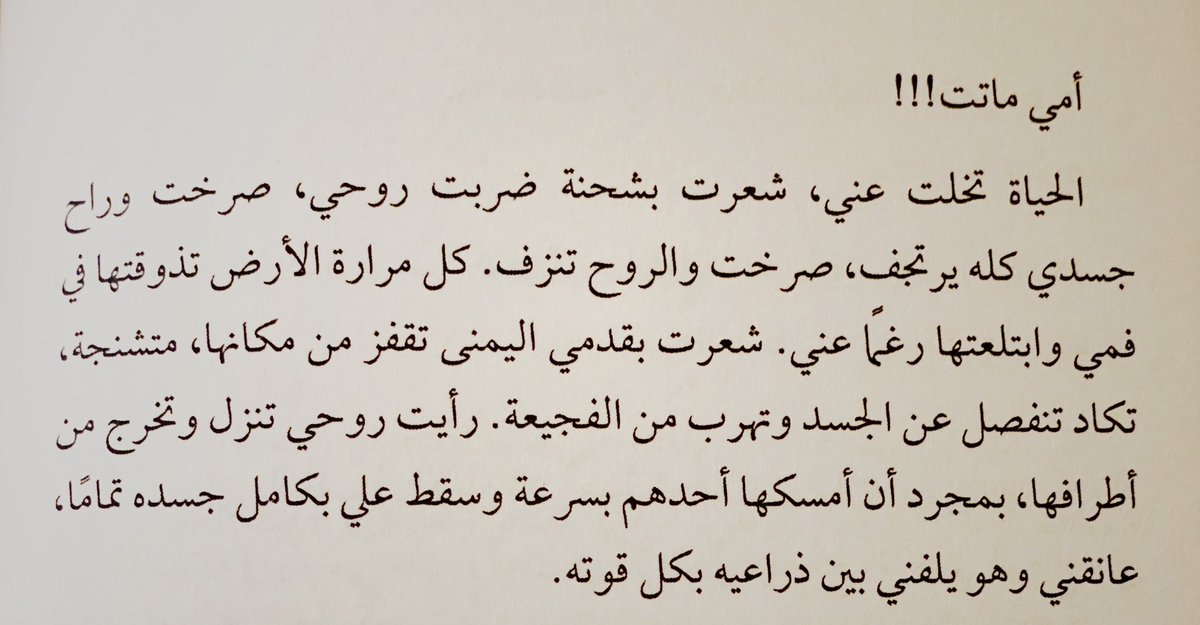 أمي ماتت!!!
الحياة تخلت عني، شعرت بشحنة ضربت روحي، صرخت وراح
جسدي كله يرتجف، صرخت والروح تنزف. كل مرارة الأرض تذوقتها في
فمي وابتلعتها رغمًا عني. شعرت بقدمي اليمنى تقفز من مكانها، متشنجة،
تكاد تنفصل عن الجسد وتهرب من الفجيعة. رأيت روحي تنزل وتخرج من
أطرافها، بمجرد أن أمسكها أحدهم بسرعة وسقط علي بكامل جسده تمامًا،
عانقني وهو يلفني بين ذراعيه بكل قوته.